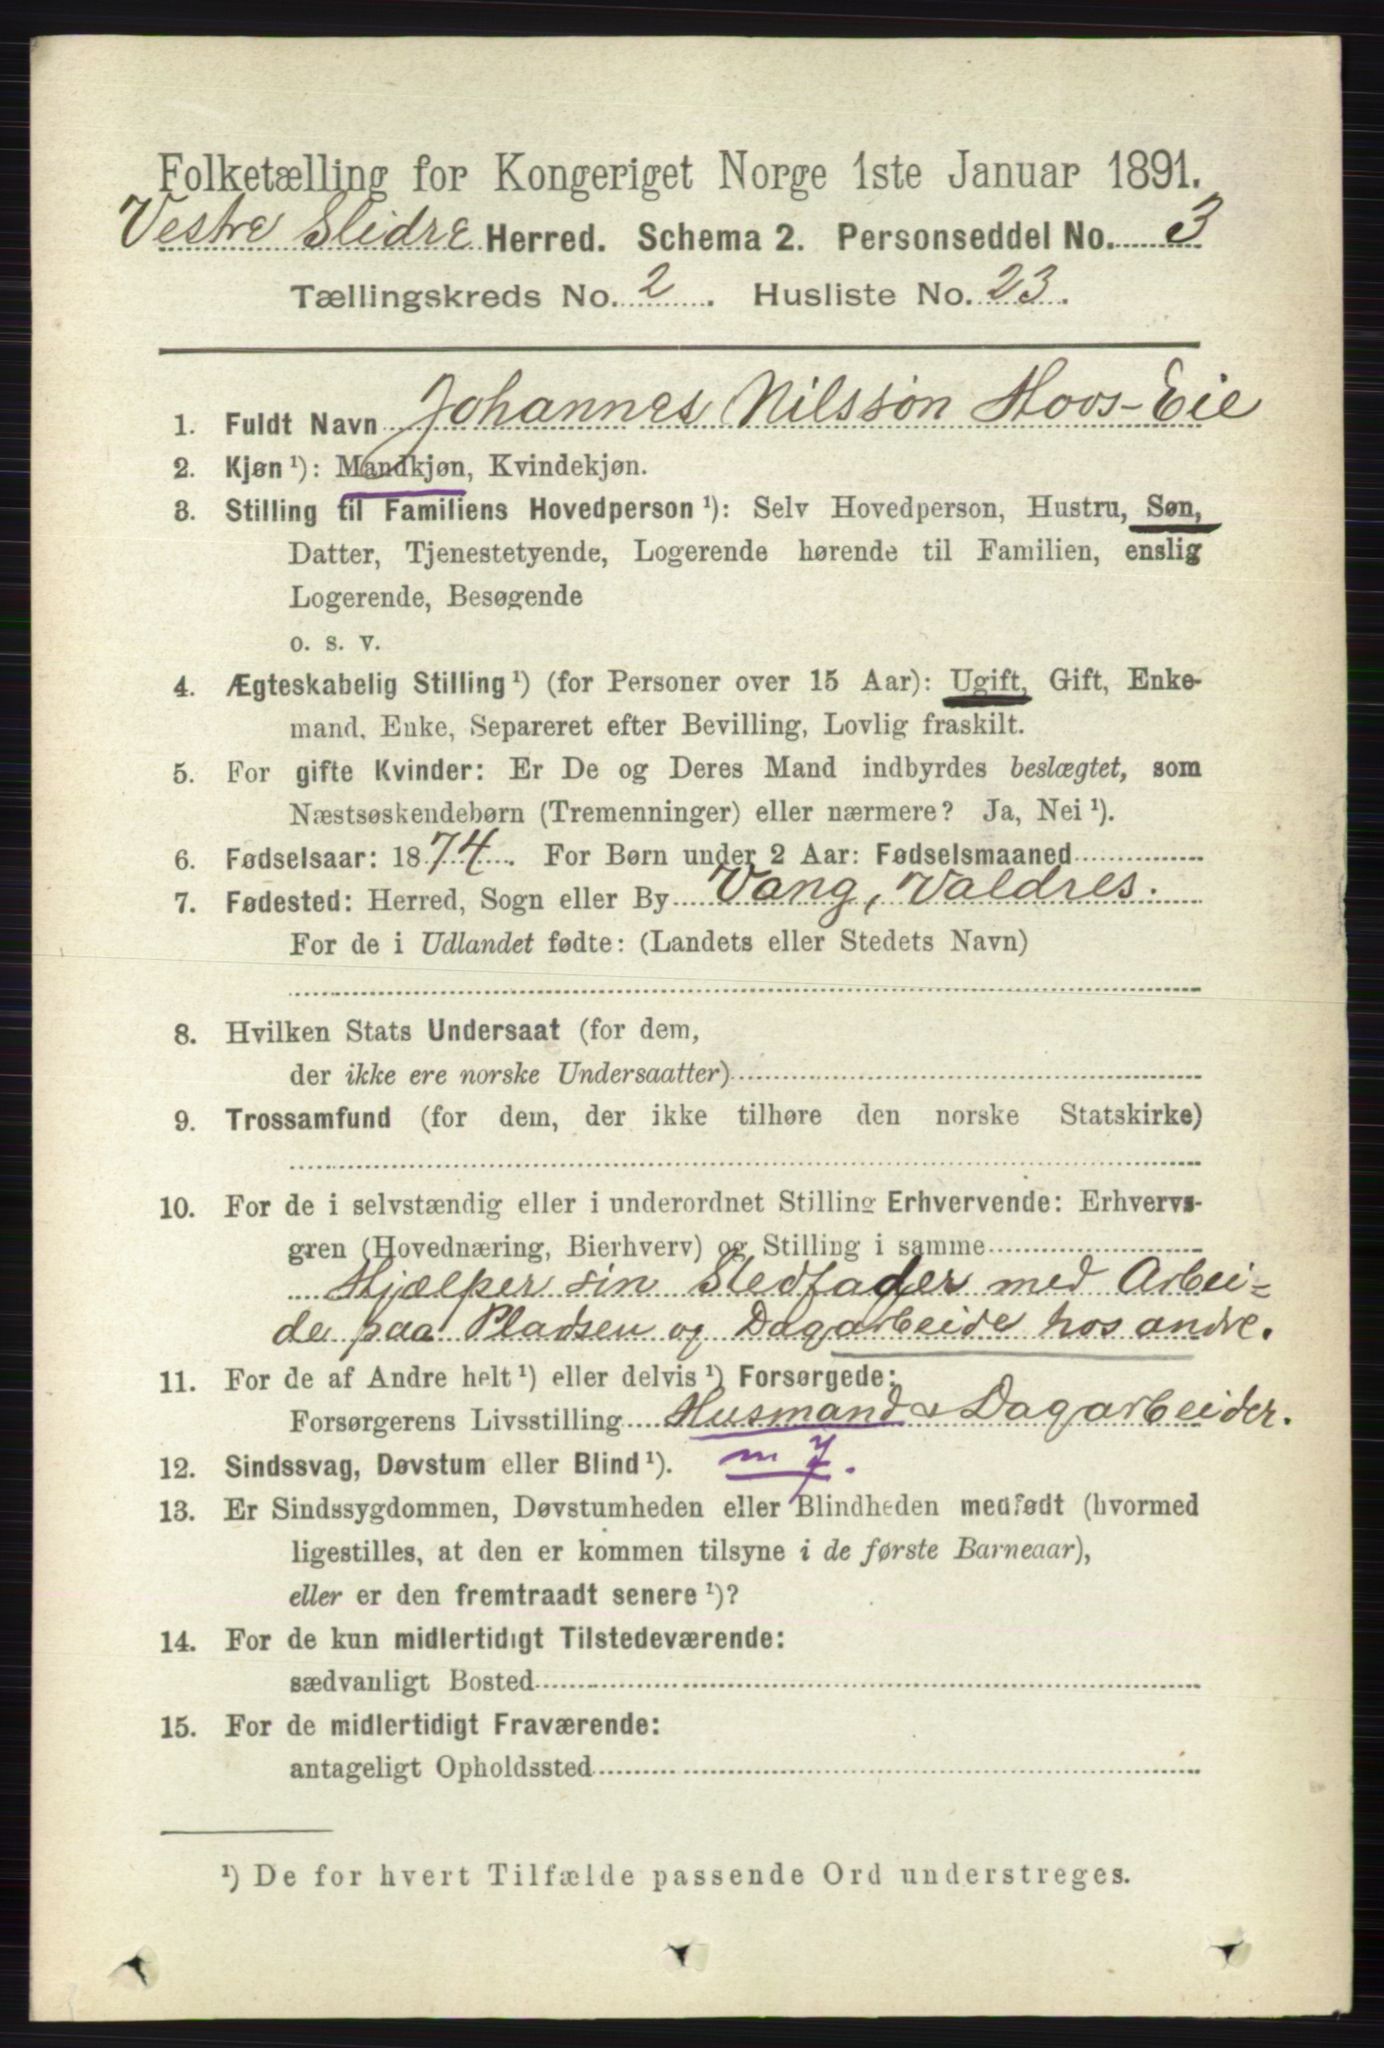 Folketælling for Kongeriget Norge 1ste Januar 1891.
Vestre Slidre Herred. Schema 2. Personseddel No. 3
Tællingskreds No. 2. Husliste No. 23.
1. Fuldt Navn Johannes Nilsson Hoos-Eie
2. Kjøn ¹): Mandkjøn, Kvindekjøn.
3. Stilling til Familiens Hovedperson ¹): Selv Hovedperson, Hustru, Søn,
Datter, Tjenestetyende, Logerende hørende til Familien, enslig
Logerende, Besøgende
o. s. v.
4. Ægteskabelig Stilling ¹) (for Personer over 15 Aar): Ugift, Gift, Enke-
mand, Enke, Separeret efter Bevilling, Lovlig fraskilt.
5. For gifte Kvinder: Er De og Deres Mand indbyrdes beslægtet, som
Næstsøskendebørn (Tremenninger) eller nærmere? Ja, Nei ¹).
6. Fødselsaar: 1874. For Børn under 2 Aar: Fødselsmaaned
7. Fødested: Herred, Sogn eller By Vang, Valdres.
For de i Udlandet fødte: (Landets eller Stedets Navn)
8. Hvilken Stats Undersaat (for dem,
der ikke ere norske Undersaatter)
9. Trossamfund (for dem, der ikke tilhøre den norske Statskirke)
10. For de i selvstændig eller i underordnet Stilling Erhvervende: Erhvervs-
gren (Hovednæring, Bierhverv) og Stilling i samme
Hjælper sin Stedfader med Arbei=
de paa Pladsen og Dagarbeide hos andre.
11. For de af Andre helt ¹) eller delvis ¹) Forsørgede:
Forsørgerens Livsstilling Husmand & Dagarbeider.
12. Sindssvag, Døvstum eller Blind ¹). m 7.
13. Er Sindssygdommen, Døvstumheden eller Blindheden medfødt (hvormed
ligestilles, at den er kommen tilsyne i de første Barneaar),
eller er den fremtraadt senere ¹)?
14. For de kun midlertidigt Tilstedeværende:
sædvanligt Bosted
15. For de midlertidigt Fraværende:
antageligt Opholdssted
¹) De for hvert Tilfælde passende Ord understreges.